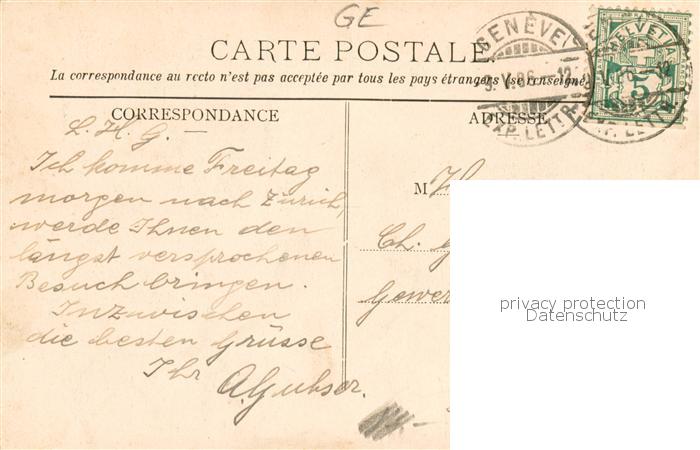 GE
CARTE POSTALE
La correspondance au recto n'est pas acceptée par tous les pays étrangers (se renseigné
CORRESPONDANCE
ADRESSE
GENÈVE
EXP. LETTR.
HELVETIA
5
L. H. G. —
Ich komme Freitag
morgen nach Zürich,
werde Ihnen den
längst versprochenen
Besuch bringen.
Inzwischen
die besten Grüsse
Ihr A. Gubser.
M H
Ch. G
Gewer
privacy protection
Datenschutz